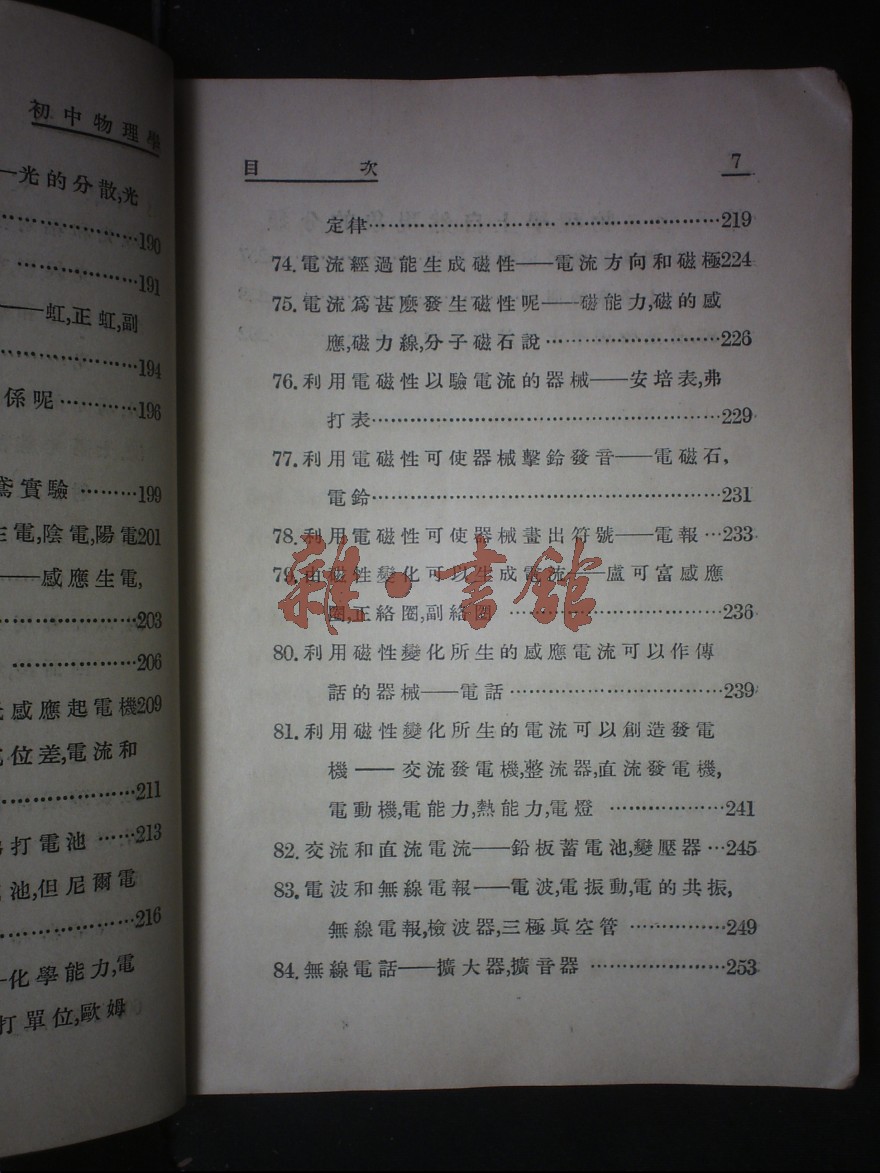 初中物理學
—光的分散,光
……………190
……………191
——虹,正虹,副
……………194
係呢…………196
鳶實驗………199
生電,陰電,陽電201
——感應生電,
……………203
……………206
感應起電機209
位差,電流和
……………211
打電池……213
池,但尼爾電
……………216
—化學能力,電
打單位,歐姆
目次 7
定律……………………………………219
74.電流經過能生成磁性——電流方向和磁極224
75.電流爲甚麼發生磁性呢——磁能力,磁的感
應,磁力線,分子磁石說…………………226
76.利用電磁性以驗電流的器械——安培表,弗
打表……………………………………229
77.利用電磁性可使器械擊鈴發音——電磁石,
電鈴……………………………………231
78.利用電磁性可使器械畫出符號——電報…233
79.由磁性變化可以生成電流——盧可富感應
圈,正絡圈,副絡圈………………………236
80.利用磁性變化所生的感應電流可以作傳
話的器械——電話………………………239
81.利用磁性變化所生的電流可以創造發電
機——交流發電機,整流器,直流發電機,
電動機,電能力,熱能力,電燈……………241
82.交流和直流電流——鉛板蓄電池,變壓器…245
83.電波和無線電報——電波,電振動,電的共振,
無線電報,檢波器,三極眞空管……………249
84.無線電話——擴大器,擴音器………………253
雜·書館